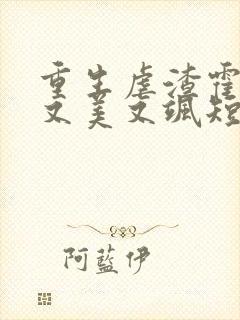 重生虐渣霍
又美又飒短
阿蓝伊